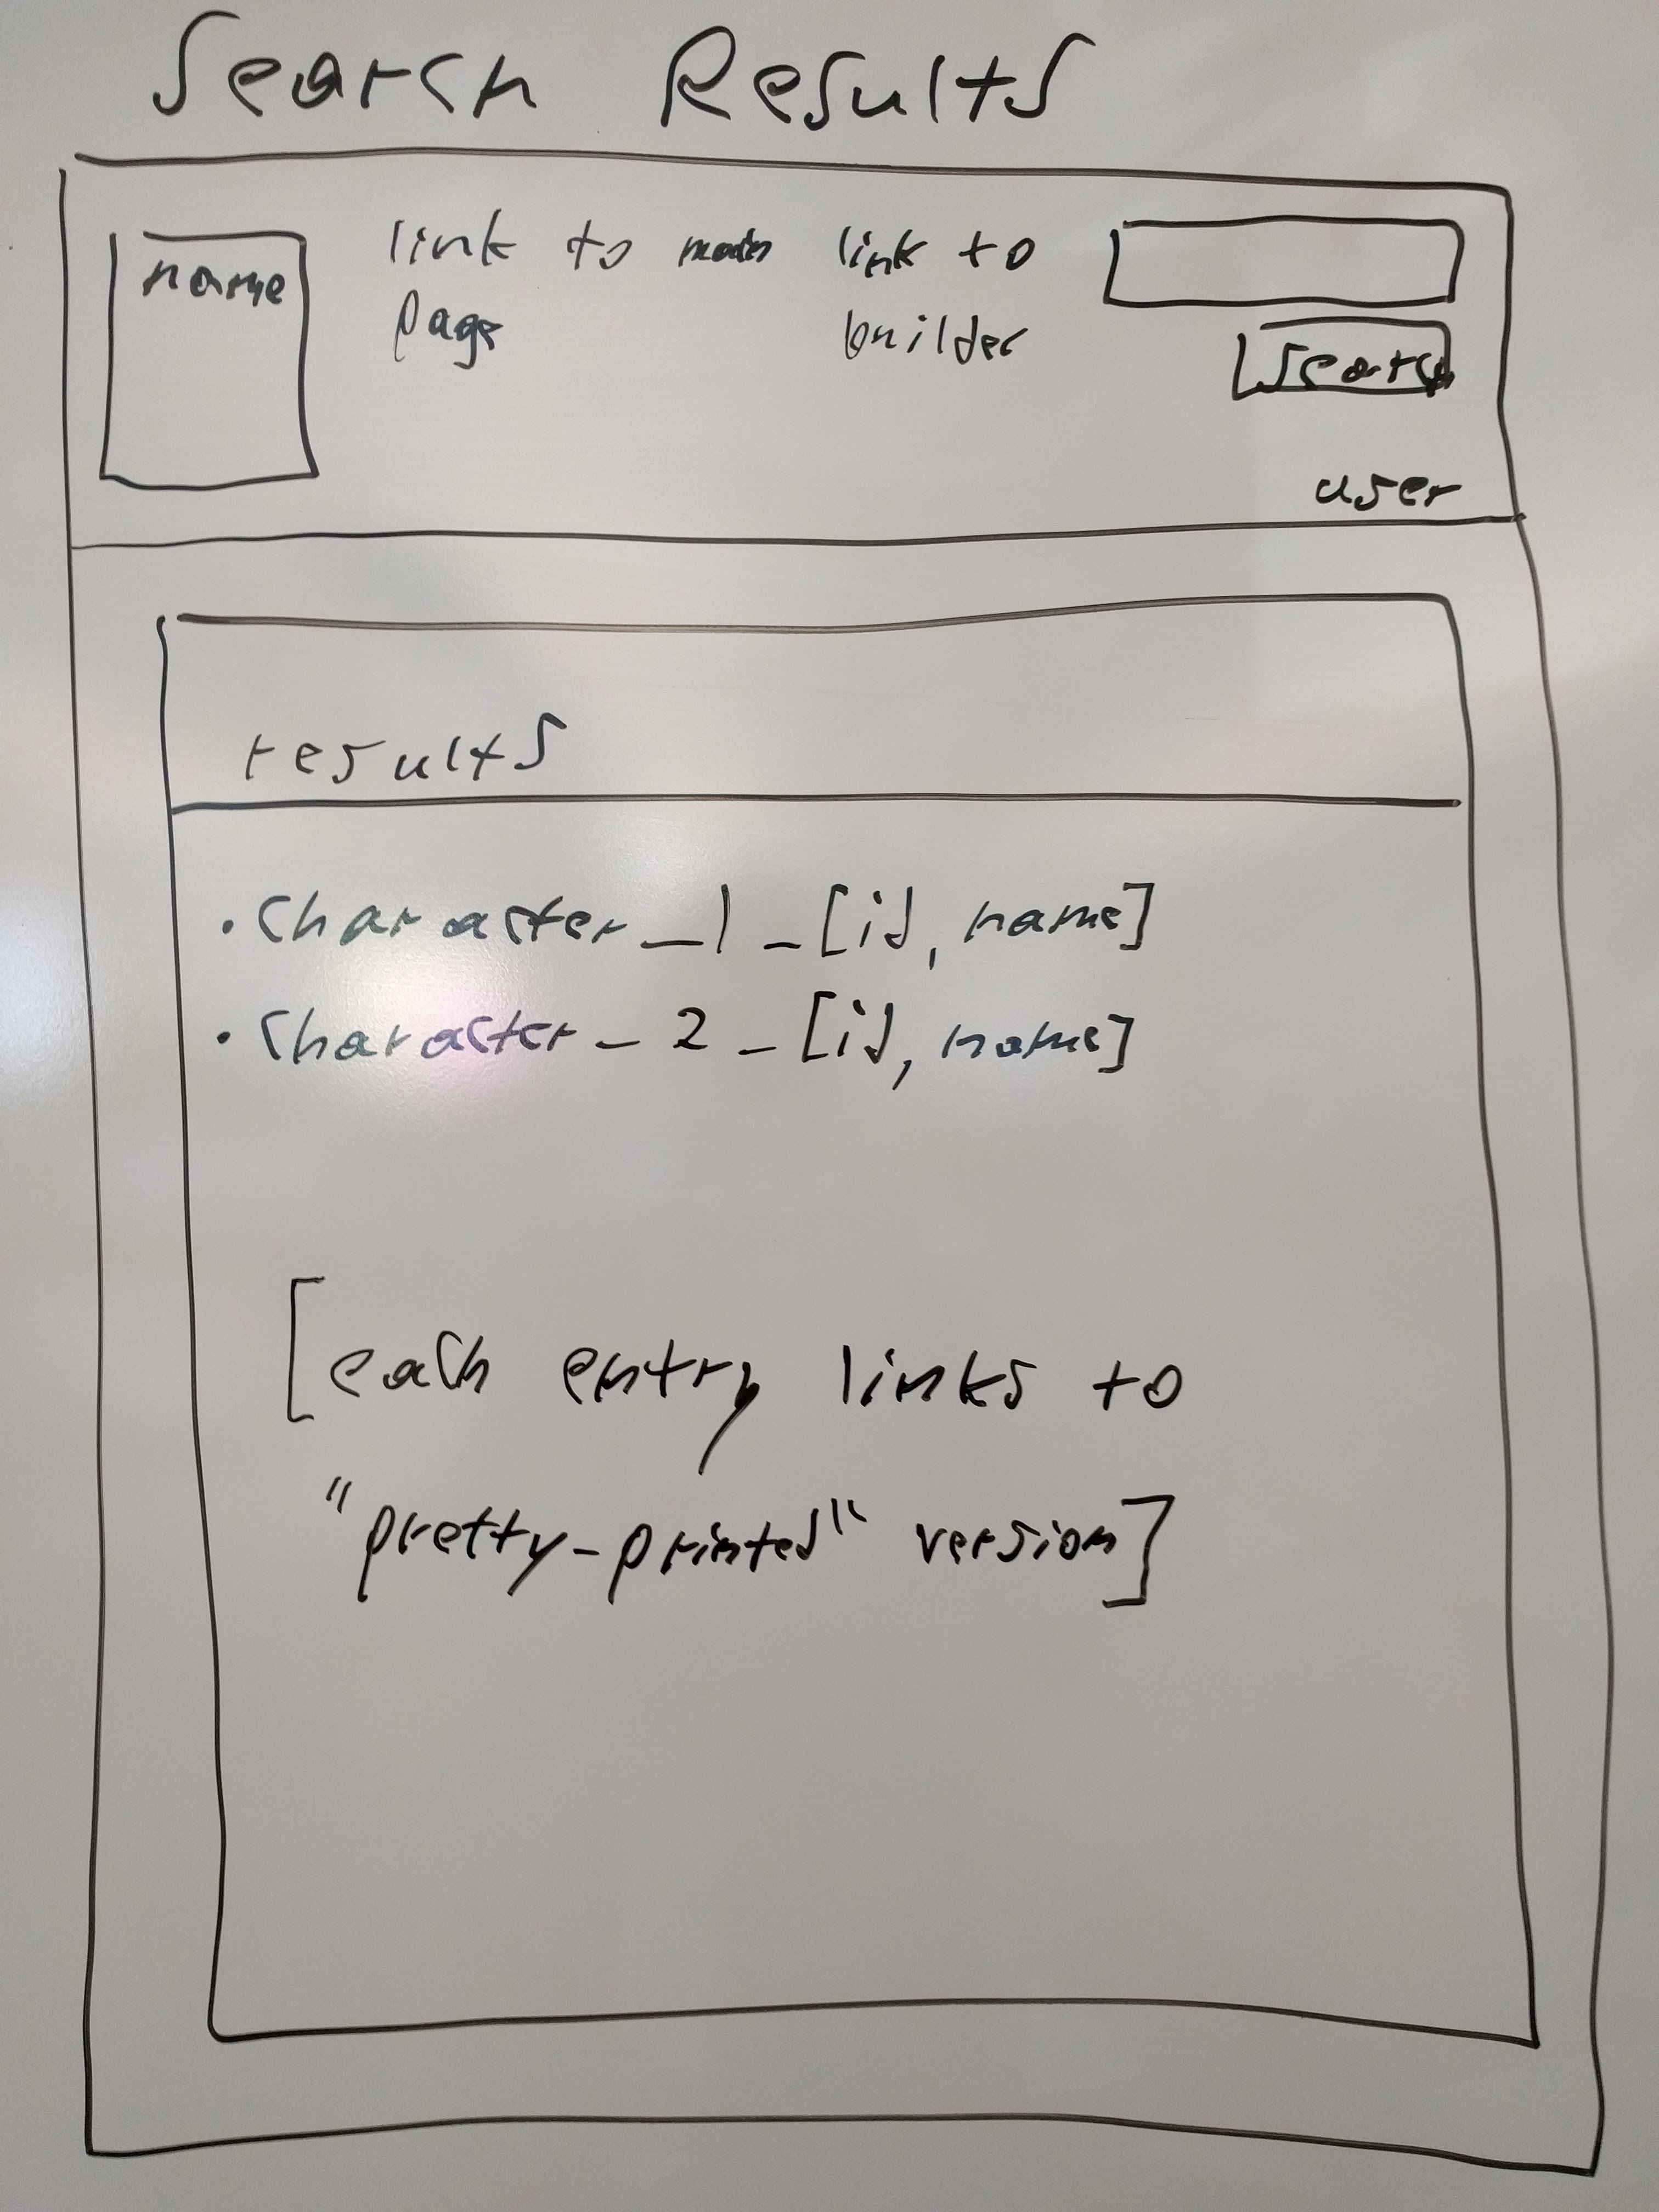 Search Results
name
link to main
page
link to
builder
search
user
results
• Character_1_[id, name]
• Character_2_[id, name]
[each entry links to
"pretty-printed" version]